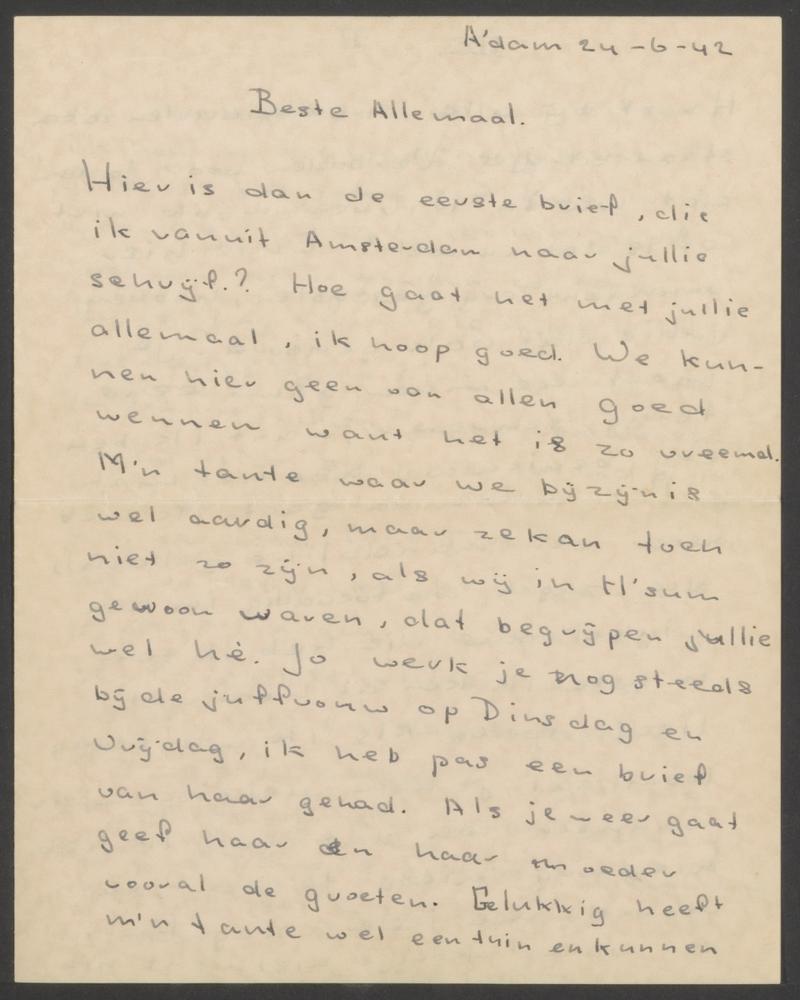 A'dam 24-6-42
Beste Allemaal.
Hier is dan de eerste brief, die
ik vanuit Amsterdam naar jullie
schrijf.? Hoe gaat het met jullie
allemaal, ik hoop goed. We kun-
nen hier geen van allen goed
wennen want het is zo vreemd.
M'n tante waar we bij zijn is
wel aardig, maar ze kan toch
niet zo zijn, als wij in H'sum
gewoon waren, dat begrijpen jullie
wel hè. Jo werk je nog steeds
bij de juffrouw op Dinsdag en
Vrijdag, ik heb pas een brief
van haar gehad. Als je weer gaat
geef haar en haar moeder
vooral de groeten. Gelukkig heeft
m'n tante wel een tuin en kunnen